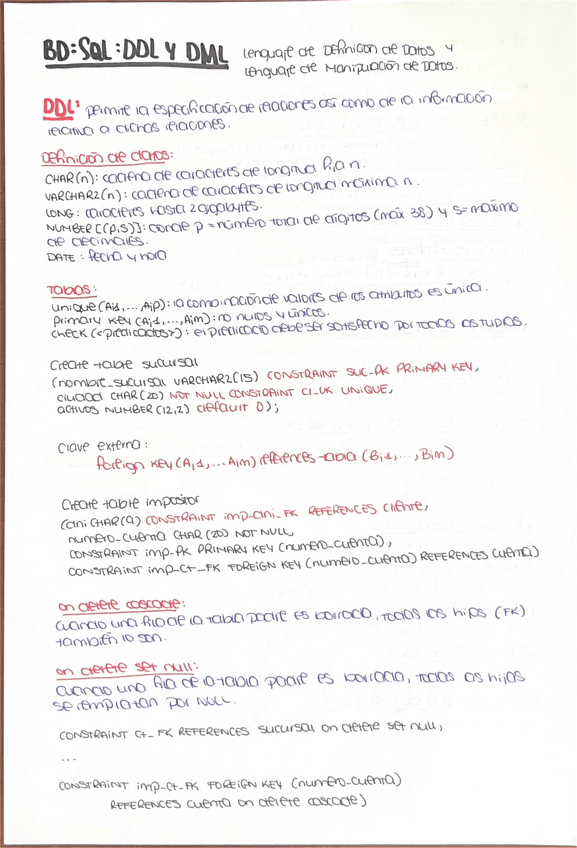 BD: SQL: DDL Y DML Lenguaje de Definición de Datos y
Lenguaje de Manipulación de Datos.
DDL: permite la especificación de relaciones así como de la información
relativa a dichas relaciones.
Definición de datos:
CHAR(n): cadena de caracteres de longitud fija n.
VARCHAR2(n): cadena de caracteres de longitud máxima n.
LONG: caracteres hasta 2 gigabytes.
NUMBER [(P,S)]: donde p = número total de dígitos (máx 38) y s = máximo
de decimales.
DATE: fecha y hora
Tablas:
unique (Ai1, ..., Aip): la combinación de valores de los atributos es única.
Primary Key (Aj1, ..., Ajm): no nulos y únicos.
check (<predicados>): el predicado debe ser satisfecho por todas las tuplas.
Create table sucursal
(nombre_sucursal VARCHAR2(15) CONSTRAINT suc_PK PRIMARY KEY,
ciudad CHAR(20) NOT NULL CONSTRAINT CI_UK UNIQUE,
activos NUMBER(12,2) default 0);
Clave externa:
foreign key (Ai1, ... Aim) references tabla (Bi1, ..., Bim)
Create table impositor
(dni CHAR(9) CONSTRAINT imp_dni_FK REFERENCES cliente,
numero_cuenta CHAR (20) NOT NULL,
CONSTRAINT imp_PK PRIMARY KEY (numero_cuenta),
CONSTRAINT imp_ct_FK FOREIGN KEY (numero_cuenta) REFERENCES cuenta)
on delete cascade:
cuando una fila de la tabla padre es borrada, todos los hijos (FK)
también lo son.
on delete set null:
cuando una fila de la tabla padre es borrada, todas los hijos
se remplazan por NULL.
CONSTRAINT ct_FK REFERENCES sucursal on delete set null,
...
CONSTRAINT imp_ct_FK FOREIGN KEY (numero_cuenta)
REFERENCES cuenta on delete cascade)